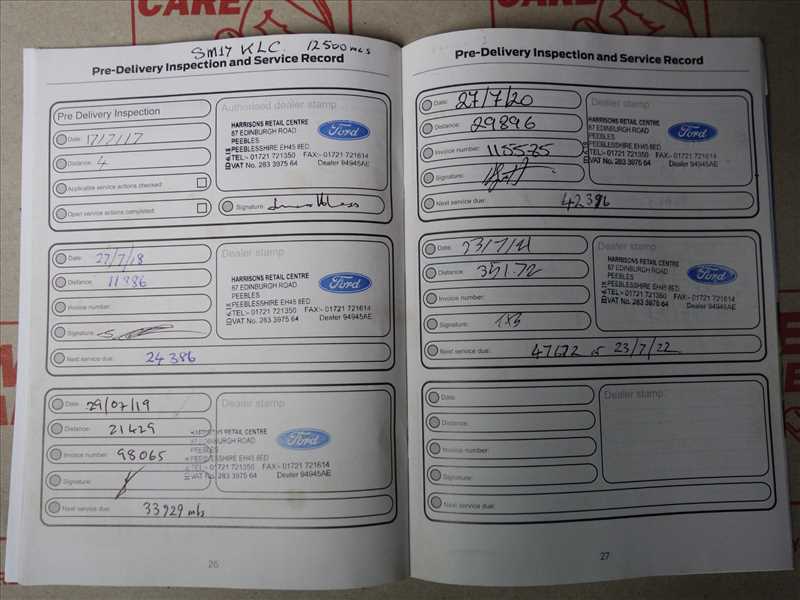 CARE
CARE
SM17 KLC. 12500 mls
Pre-Delivery Inspection and Service Record
Pre Delivery Inspection
Date: 17/7/17
Distance: 4
Applicable service actions checked
Open service actions completed
Authorised dealer stamp
HARRISONS RETAIL CENTRE
87 EDINBURGH ROAD
PEEBLES
PEEBLESSHIRE EH45 8ED
TEL:- 01721 721350 FAX:- 01721 721614
VAT No. 283 3975 64 Dealer 94945AE
Ford
Signature:
Date: 27/7/18
Distance: 11886
Invoice number:
Signature:
Next service due: 24386
Dealer stamp
HARRISONS RETAIL CENTRE
87 EDINBURGH ROAD
PEEBLES
PEEBLESSHIRE EH45 8ED
TEL:- 01721 721350 FAX:- 01721 721614
VAT No. 283 3975 64 Dealer 94945AE
Ford
Date: 29/07/19
Distance: 21429
Invoice number: 98065
Signature:
Next service due: 33929 mls
Dealer stamp
HARRISONS RETAIL CENTRE
87 EDINBURGH ROAD
PEEBLES
PEEBLESSHIRE EH45 8ED
TEL:- 01721 721350 FAX:- 01721 721614
VAT No. 283 3975 64 Dealer 94945AE
Ford
26
Pre-Delivery Inspection and Service Record
Date: 27/7/20
Distance: 29896
Invoice number: 115585
Signature:
Next service due: 42396
Dealer stamp
HARRISONS RETAIL CENTRE
87 EDINBURGH ROAD
PEEBLES
PEEBLESSHIRE EH45 8ED
TEL:- 01721 721350 FAX:- 01721 721614
VAT No. 283 3975 64 Dealer 94945AE
Ford
Date: 23/7/21
Distance: 35172
Invoice number:
Signature:
Next service due: 47672 or 23/7/22
Dealer stamp
HARRISONS RETAIL CENTRE
87 EDINBURGH ROAD
PEEBLES
PEEBLESSHIRE EH45 8ED
TEL:- 01721 721350 FAX:- 01721 721614
VAT No. 283 3975 64 Dealer 94945AE
Ford
Date:
Distance:
Invoice number:
Signature:
Next service due:
Dealer stamp
27